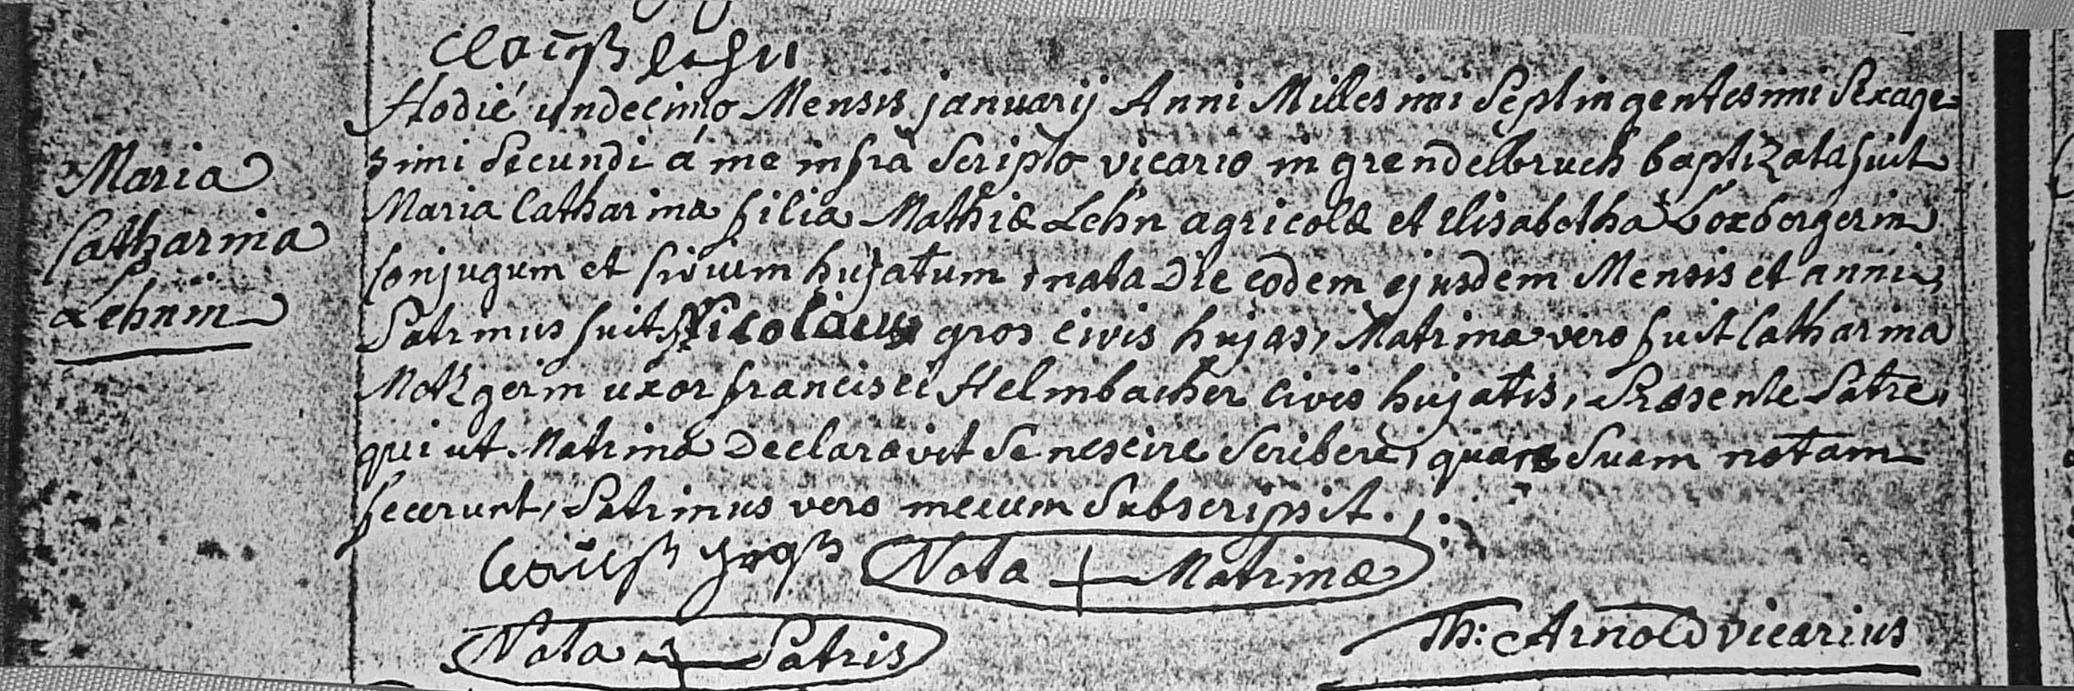 Clauß Lehn
Hodié undecimo Mensis januarij Anni Millesimi Septingentesimi Sexage=
simi Secundi á me infrà Scripto vicario in grendelbruch baptizata fuit
Maria Catharina filia Mathiæ Lehn agricolæ et elisabetha Boxbergerin
Conjugum et Civium hujatum, nata Die eodem ejusdem Mensis et anni,
Patrinus fuit Nicolaus gros civis hujas, Matrina vero fuit Catharina
Metzgerin uxor francisci Helmbacher civis hujatis, Præsente Patre,
qui ut Matrina Declaravit Se nescire Scribere, quare Suam notam
fecerunt, Patrinus vero mecum Subscripsit.
Maria
Catharina
Lehnin
Clauß groß Nota Matrinæ
Nota Patris
Th: Arnold vicarius